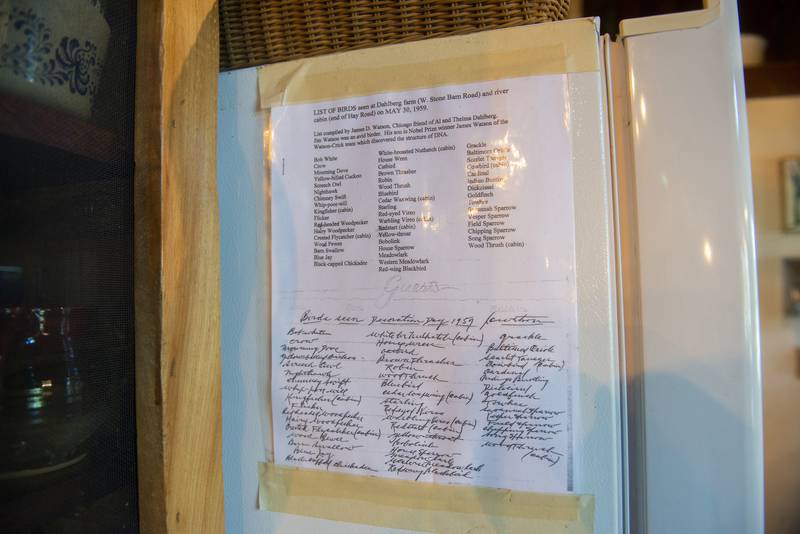 LIST OF BIRDS seen at Dahlberg farm (W. Stone Barn Road) and river
cabin (end of Hay Road) on MAY 30, 1959.
List compiled by James D. Watson, Chicago friend of Al and Thelma Dahlberg.
Jim Watson was an avid birder. His son is Nobel Prize winner James Watson of the
Watson-Crick team which discovered the structure of DNA.
Bob White
Crow
Mourning Dove
Yellow-billed Cuckoo
Screech Owl
Nighthawk
Chimney Swift
Whip-poor-will
Kingfisher (cabin)
Flicker
Red-headed Woodpecker
Hairy Woodpecker
Crested Flycatcher (cabin)
Wood Pewee
Barn Swallow
Blue Jay
Black-capped Chickadee
White-breasted Nuthatch (cabin)
House Wren
Catbird
Brown Thrasher
Robin
Wood Thrush
Bluebird
Cedar Waxwing (cabin)
Starling
Red-eyed Vireo
Warbling Vireo (cabin)
Redstart (cabin)
Yellow-throat
Bobolink
House Sparrow
Meadowlark
Western Meadowlark
Red-wing Blackbird
Grackle
Baltimore Oriole
Scarlet Tanager
Cowbird (cabin)
Cardinal
Indigo Bunting
Dickcissel
Goldfinch
Towhee
Savannah Sparrow
Vesper Sparrow
Field Sparrow
Chipping Sparrow
Song Sparrow
Wood Thrush (cabin)
Guests
Birds seen Decoration Day 1959
Bob white
crow
mourning Dove
Screech Owl
Nighthawk
chimney swift
whip poor will
Kingfisher (cabin)
Flicker
Redheaded woodpecker
Hairy woodpecker
Crested Flycatcher (cabin)
wood Pewee
Barn Swallow
Blue Jay
Black capped chickadee
House wren
catbird
Brown Thrasher
Robin
wood thrush
Bluebird
cedar waxwing (cabin)
starling
Redeyed Vireo
warbling vireo (cabin)
Redstart (cabin)
yellow-throat
bobolink
House Sparrow
western meadowlark
Redwing blackbird
grackle
Baltimore Oriole
Scarlet Tanager
Cowbird (cabin)
Cardinal
Indigo Bunting
Dickcissel
Goldfinch
Towhee
Savannah Sparrow
Vesper Sparrow
Field Sparrow
Chipping Sparrow
Song Sparrow
wood Thrush
(cabin)